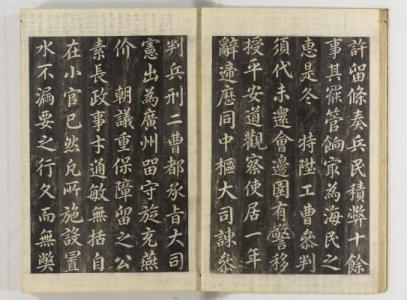 許留條奏兵民積弊十餘
事其罷管餉㝡為海民之
恵是冬 特陞工曹叅判
須代未還會邊圉有警移
授平安道觀察使居一年
辭遞歷同中樞大司諫叅
判兵刑二曹都承旨大司
憲出為廣州留守旋充燕
价 朝議重保障留之公
素長政事才通敏無括自
在小官已然凡所施設置
水不漏要之行久而無獘